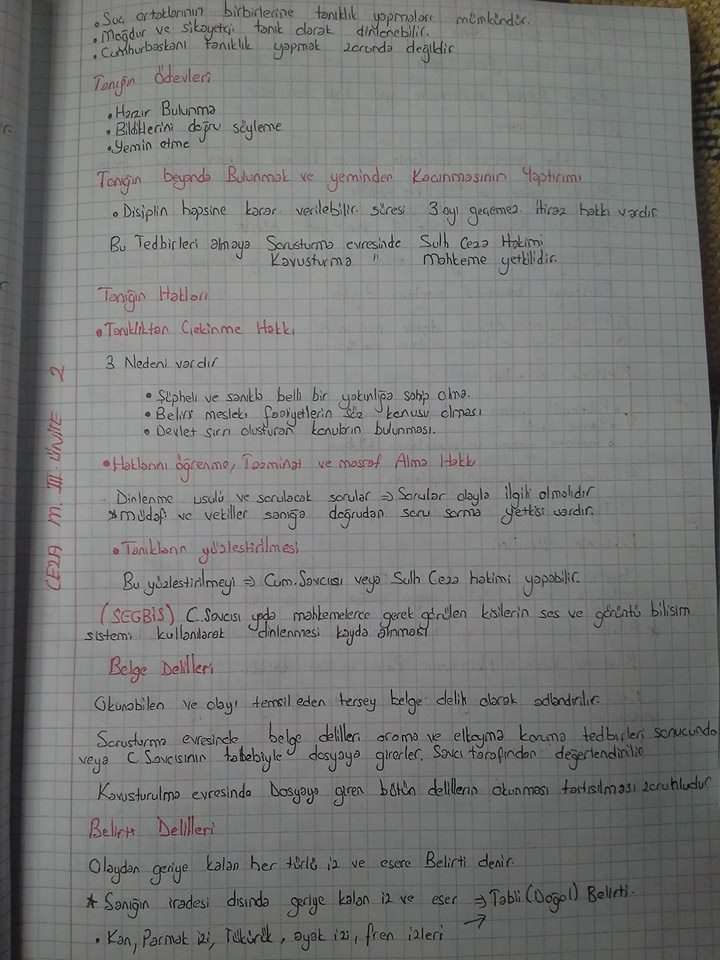 • Suç ortaklarının birbirlerine tanıklık yapmaları mümkündür.
• Mağdur ve şikayetçi tanık olarak dinlenebilir.
• Cumhurbaşkanı tanıklık yapmak zorunda değildir
Tanığın Ödevleri
• Hazır Bulunma
• Bildiklerini doğru söyleme
• Yemin etme
Tanığın beyanda Bulunmak ve yeminden Kaçınmasının Yaptırımı
• Disiplin hapsine karar verilebilir süresi 3 ayı geçemez itiraz hakkı vardır
Bu Tedbirleri almaya Soruşturma evresinde Sulh Ceza Hakimi
Kavuşturma " Mahkeme yetkilidir.
Tanığın Hakları
• Tanıklıktan Çekinme Hakkı
3 Nedeni vardır
• Şüpheli ve sanıkla belli bir yakınlığa sahip olma.
• Belirli mesleki faaliyetlerin söz konusu olması
• Devlet sırrı oluşturan konuların bulunması.
• Haklarını öğrenme, Tazminat ve masraf Alma Hakkı
Dinlenme usulü ve sorulacak sorular ⇒ Sorular olayla ilgili olmalıdır
* müdafi ve vekiller sanığa doğrudan soru sorma yetkisi vardır.
• Tanıkların yüzleştirilmesi
Bu yüzleştirilmeyi ⇒ Cum. Savcısı veya Sulh Ceza hakimi yapabilir.
(SEGBİS) C. Savcısı yada mahkemelerce gerek görülen kişilerin ses ve görüntü bilişim
sistemi kullanılarak dinlenmesi kayda alınması
Belge Delilleri
Okunabilen ve olayı temsil eden herşey belge delili olarak adlandırılır.
Soruşturma evresinde belge delilleri arama ve elkoyma koruma tedbirleri sonucunda
veya C. Savcısının talebiyle dosyaya girerler. Savcı tarafından değerlendirilir
Kavuşturulma evresinde Dosyaya giren bütün delillerin okunması tartışılması zorunludur
Belirti Delilleri
Olaydan geriye kalan her türlü iz ve esere Belirti denir.
* Sanığın iradesi dışında geriye kalan iz ve eser ⇒ Tabii (Doğal) Belirti.
• Kan, Parmak izi, Tükürük, ayak izi, fren izleri →
CEZA M. III. ÜNİTE 2